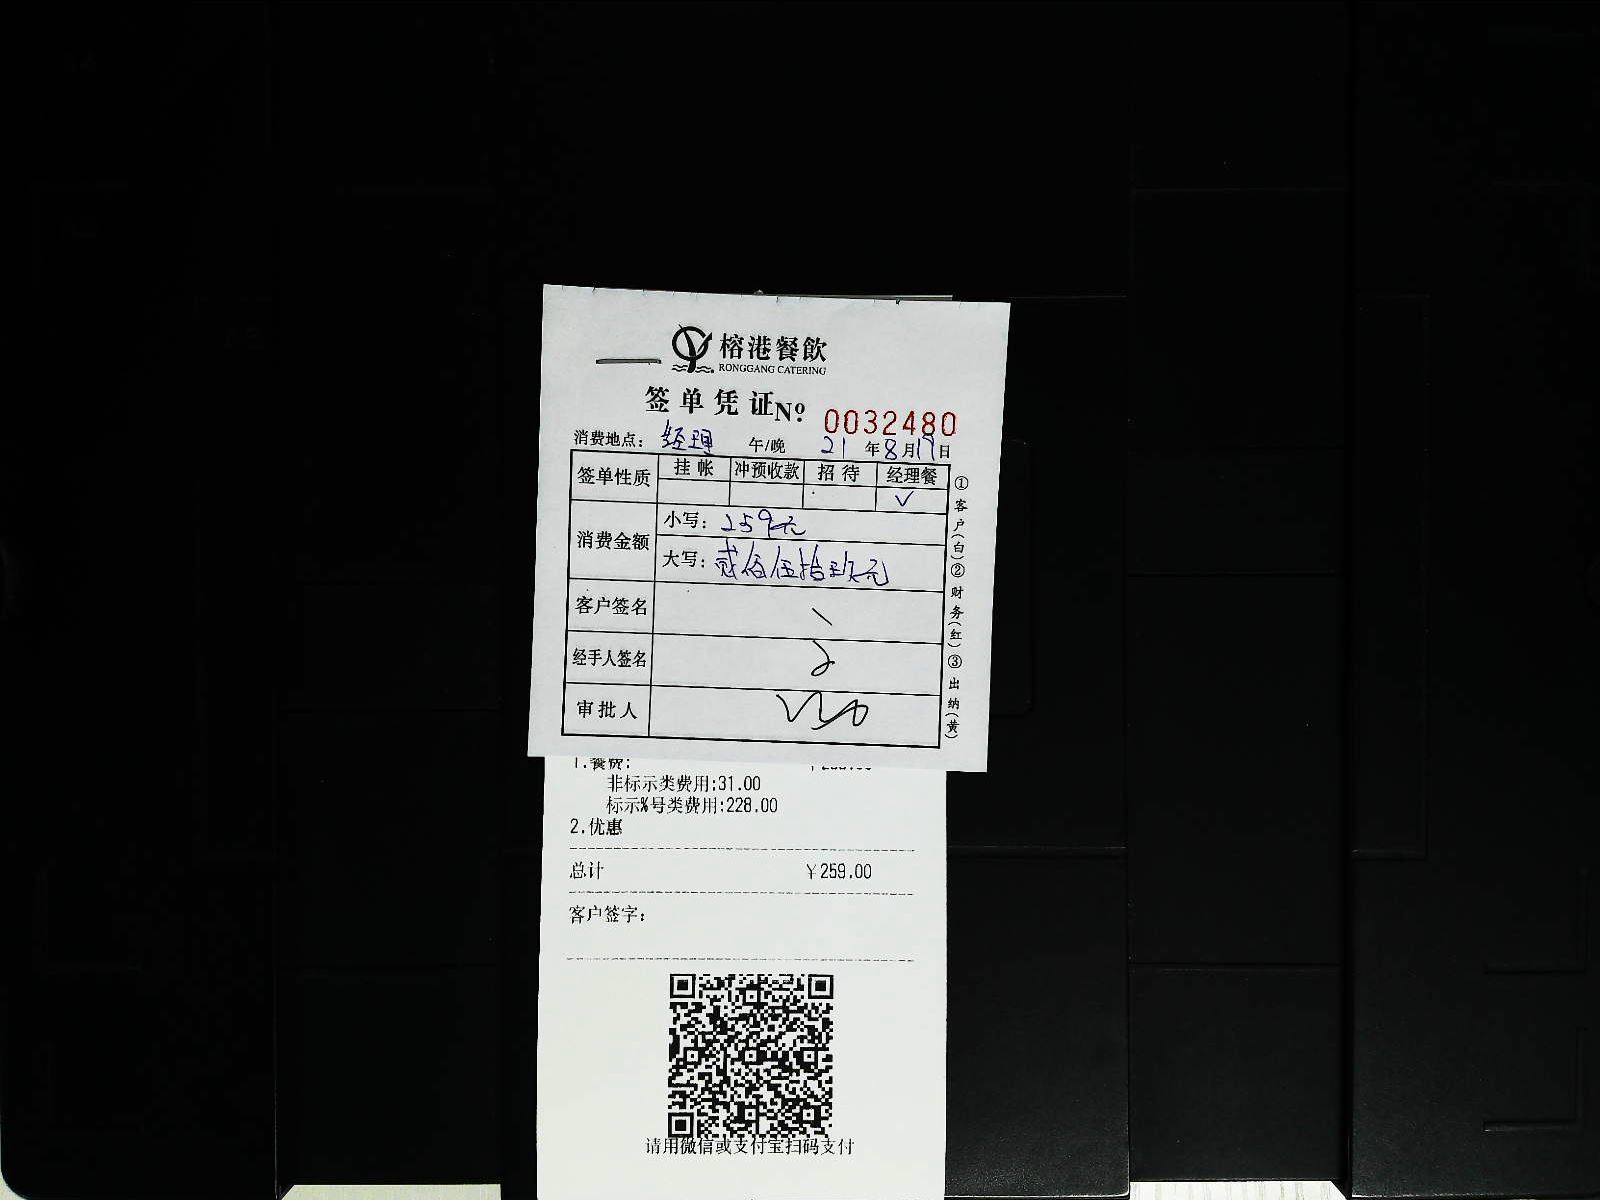 榕港餐飲
RONGGANG CATERING
签单凭证 Nº 0032480
消费地点： 经理 午/晚 21 年 8 月 17 日
签单性质 挂帐 冲预收款 招待 经理餐
✓
消费金额
小写：259元
大写：贰佰伍拾玖元
客户签名
经手人签名
审批人
①客户(白)②财务(红)③出纳(黄)
1.餐费:
非标示类费用:31.00
标示%号类费用:228.00
2.优惠
总计 ￥259.00
客户签字:
请用微信或支付宝扫码支付